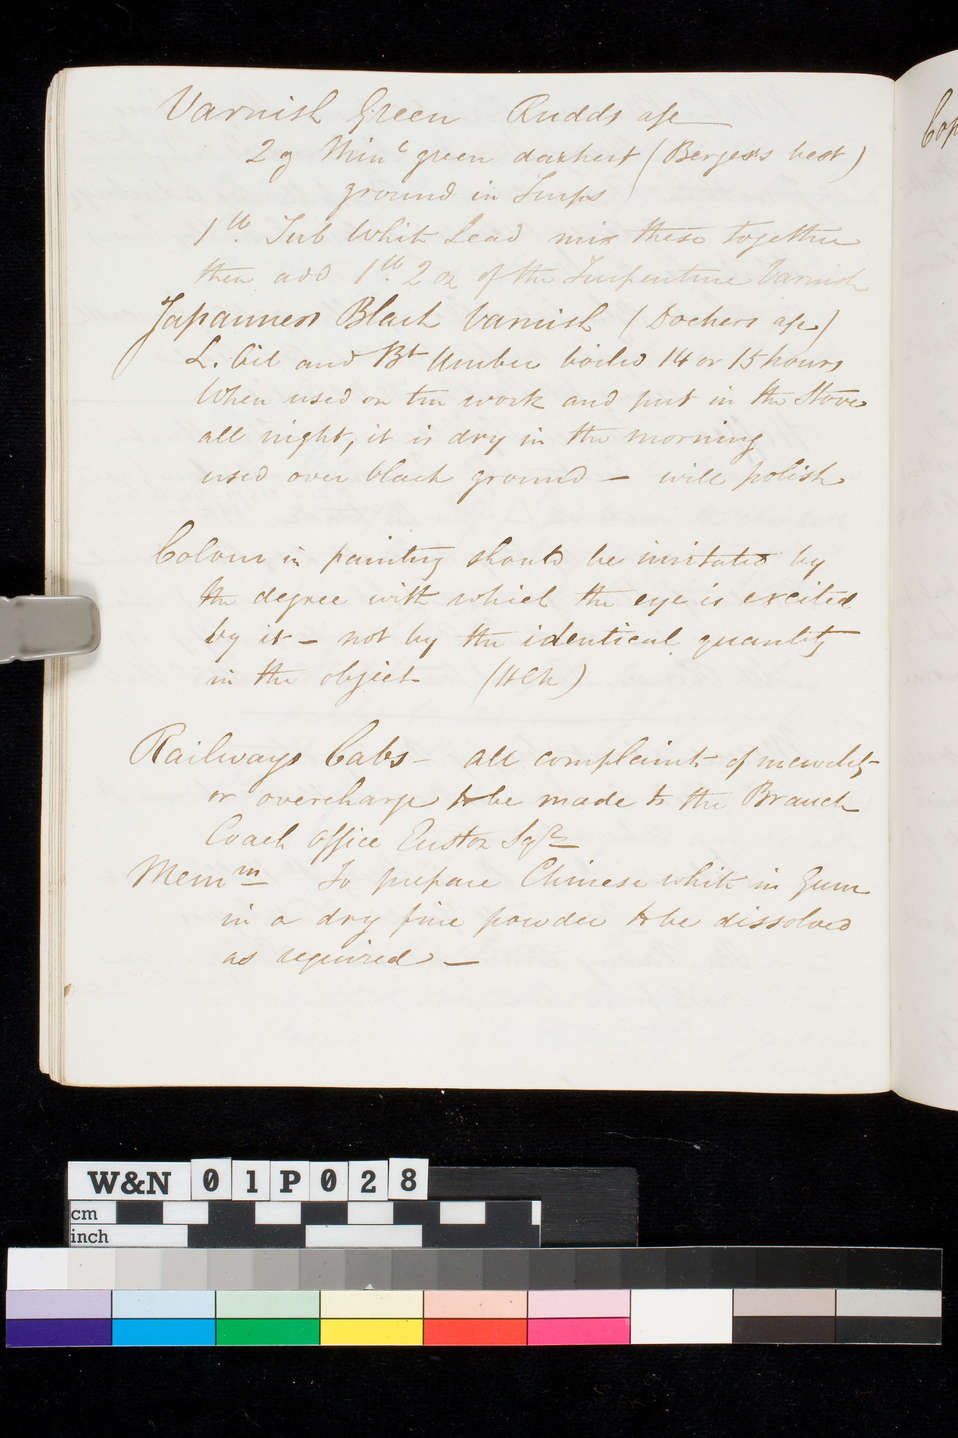 Varnish Green Rudds
2 Minl green darkest (Bergers best)
ground in Turps
1lb. Tub White Lead mix these together
then add 1lb. 2 oz of the Turpentine Varnish
Japanners Black Varnish (Dockers
L. Oil and Bt Umber boiled 14 or 15 hours
When used on tin work and put in the Stove
all night, it is dry in the morning
used over black ground – will polish
Colour in painting should be imitated by
the degree with which the eye is excited
by it – not by the identical quantity
in the object
Railways Cabs – all complaints of incivility
or overcharge to be made to the Branch
Coach Office Euston Sqre
Memm To prepare Chinese white in Gum
in a dry fine powder to be dissolved
as required –
Cop
W&N 01P028
cm
inch